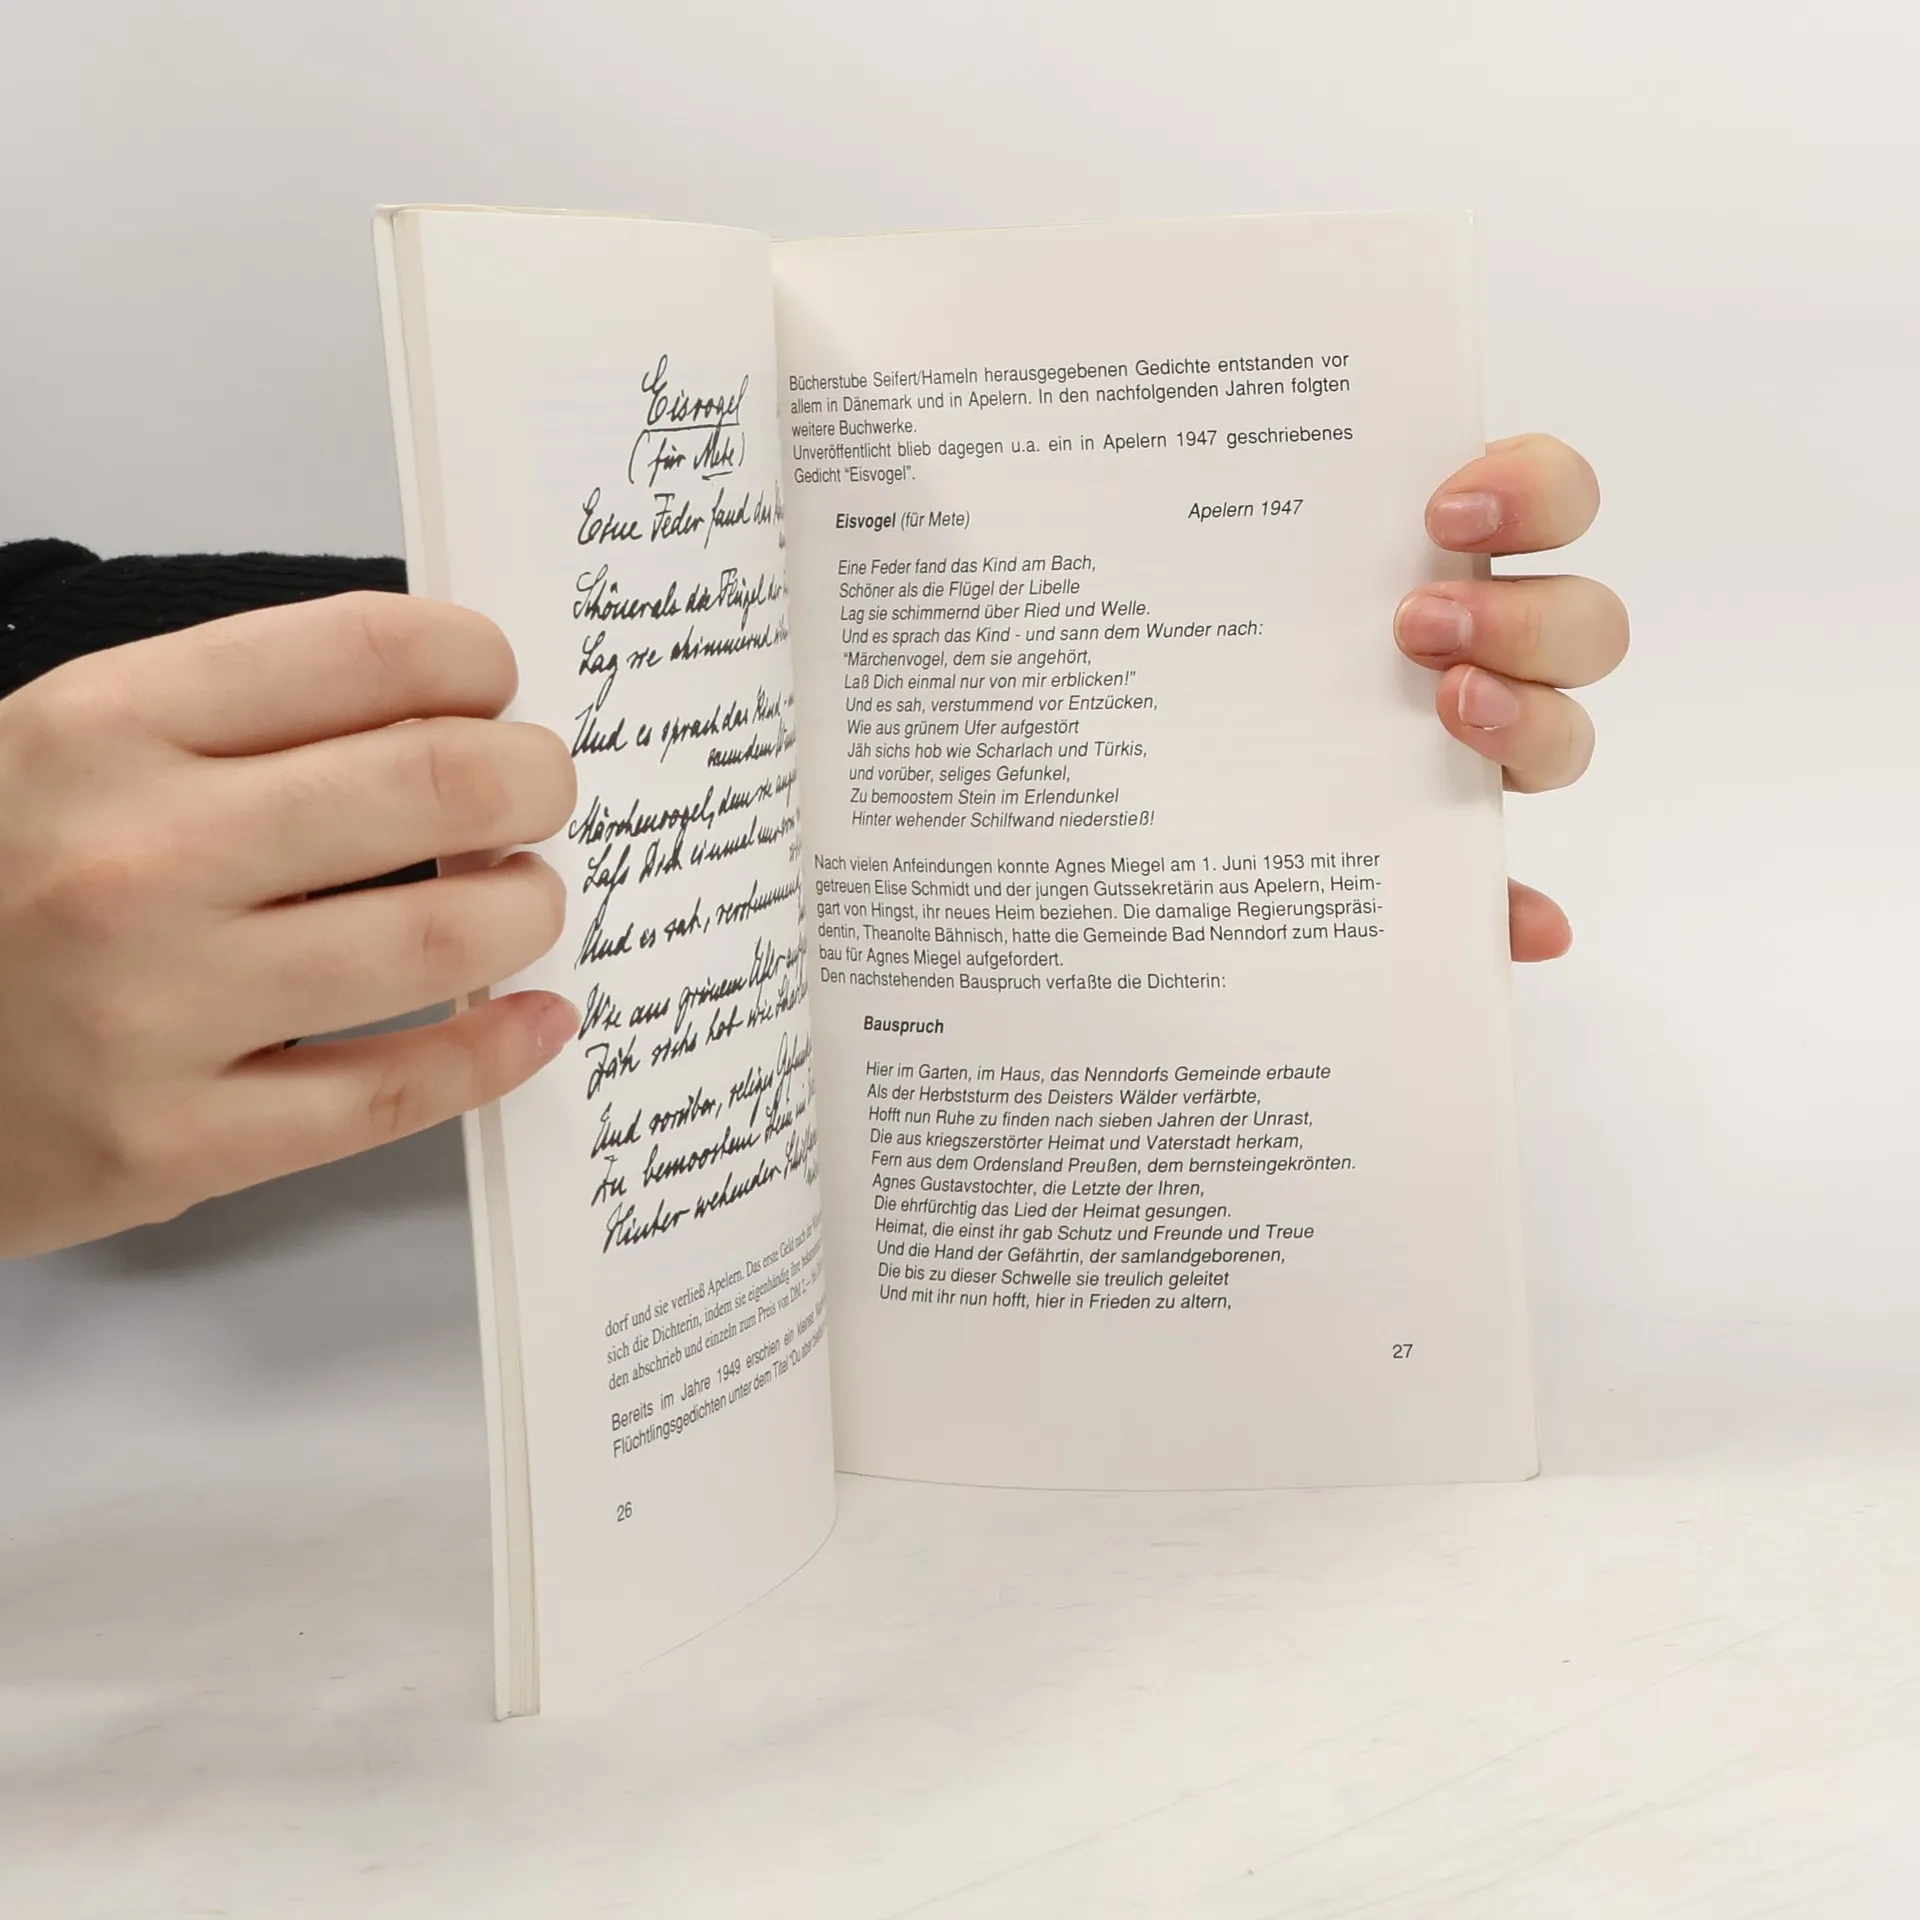 Eisvogel
(für Mete)
Eine Feder fand das
Schöner als die Flügel der
Lag sie schimmernd
Und es sprach das Kind -
sann dem
Märchenvogel, dem sie
Lass Dich einmal nur von
Und es sah, verstummend
Wie aus grünem Ufer
Jäh sichs hob wie
Und vorüber, seliges
Zu bemoostem Stein im
Hinter wehender
dorf und sie verließ Apelern. Das erste Geld nach der
sich die Dichterin, indem sie eigenhändig ihre
den abschrieb und einzeln zum Preis von DM 2.–
Bereits im Jahre 1949 erschien ein kleines
Flüchtlingsgedichten unter dem Titel "Du aber
26
Bücherstube Seifert/Hameln herausgegebenen Gedichte entstanden vor
allem in Dänemark und in Apelern. In den nachfolgenden Jahren folgten
weitere Buchwerke.
Unveröffentlicht blieb dagegen u.a. ein in Apelern 1947 geschriebenes
Gedicht "Eisvogel".
Eisvogel (für Mete) Apelern 1947
Eine Feder fand das Kind am Bach,
Schöner als die Flügel der Libelle
Lag sie schimmernd über Ried und Welle.
Und es sprach das Kind - und sann dem Wunder nach:
"Märchenvogel, dem sie angehört,
Laß Dich einmal nur von mir erblicken!"
Und es sah, verstummend vor Entzücken,
Wie aus grünem Ufer aufgestört
Jäh sichs hob wie Scharlach und Türkis,
und vorüber, seliges Gefunkel,
Zu bemoostem Stein im Erlendunkel
Hinter wehender Schilfwand niederstieß!
Nach vielen Anfeindungen konnte Agnes Miegel am 1. Juni 1953 mit ihrer
getreuen Elise Schmidt und der jungen Gutssekretärin aus Apelern, Heim-
gart von Hingst, ihr neues Heim beziehen. Die damalige Regierungspräsi-
dentin, Theanolte Bähnisch, hatte die Gemeinde Bad Nenndorf zum Haus-
bau für Agnes Miegel aufgefordert.
Den nachstehenden Bauspruch verfaßte die Dichterin:
Bauspruch
Hier im Garten, im Haus, das Nenndorfs Gemeinde erbaute
Als der Herbststurm des Deisters Wälder verfärbte,
Hofft nun Ruhe zu finden nach sieben Jahren der Unrast,
Die aus kriegszerstörter Heimat und Vaterstadt herkam,
Fern aus dem Ordensland Preußen, dem bernsteingekrönten.
Agnes Gustavstochter, die Letzte der Ihren,
Die ehrfürchtig das Lied der Heimat gesungen.
Heimat, die einst ihr gab Schutz und Freunde und Treue
Und die Hand der Gefährtin, der samlandgeborenen,
Die bis zu dieser Schwelle sie treulich geleitet
Und mit ihr nun hofft, hier in Frieden zu altern,
27